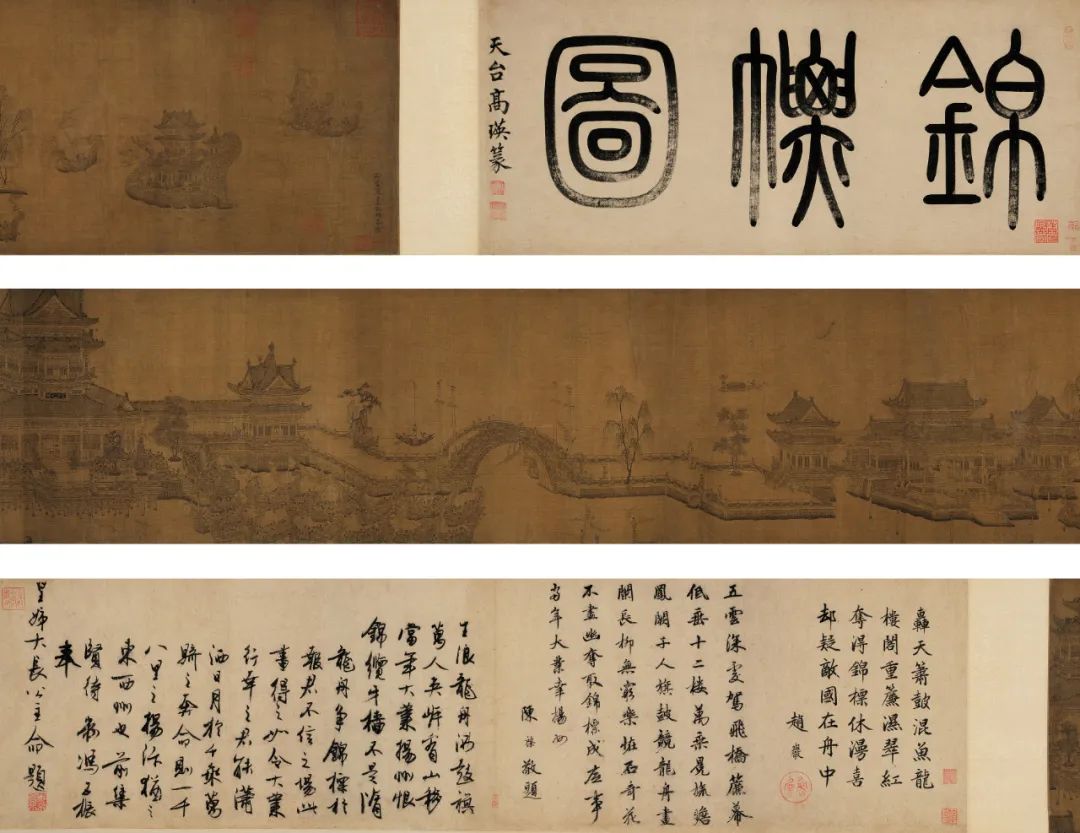 錦標圖
天台高瑛篆
轟天簫鼓混魚龍
樓閣重簾濕翠紅
奪得錦標休漫喜
却疑敵國在舟中
趙巖
五雲深處駕飛橋簾幕
低垂十二樓萬乘冕旒瞻
鳳闕千人旗鼓競龍舟畫
闌長柳無窮樂怪石奇花
不盡幽奪取錦標成底事
當年大業幸揚州
陳敬題
龍舟鼓旗
萬人有山移
當年大業揚州恨
錦纜牙檣不是隋
龍舟爭錦標於
報君不信之場此
書得之如令大業
行幸之君能瀟
洒日月於千乘萬
騎之奔命則一千
八里之揚汴猶之
東西州也前集
賢待制馮子振
奉
皇姊大長公主命題